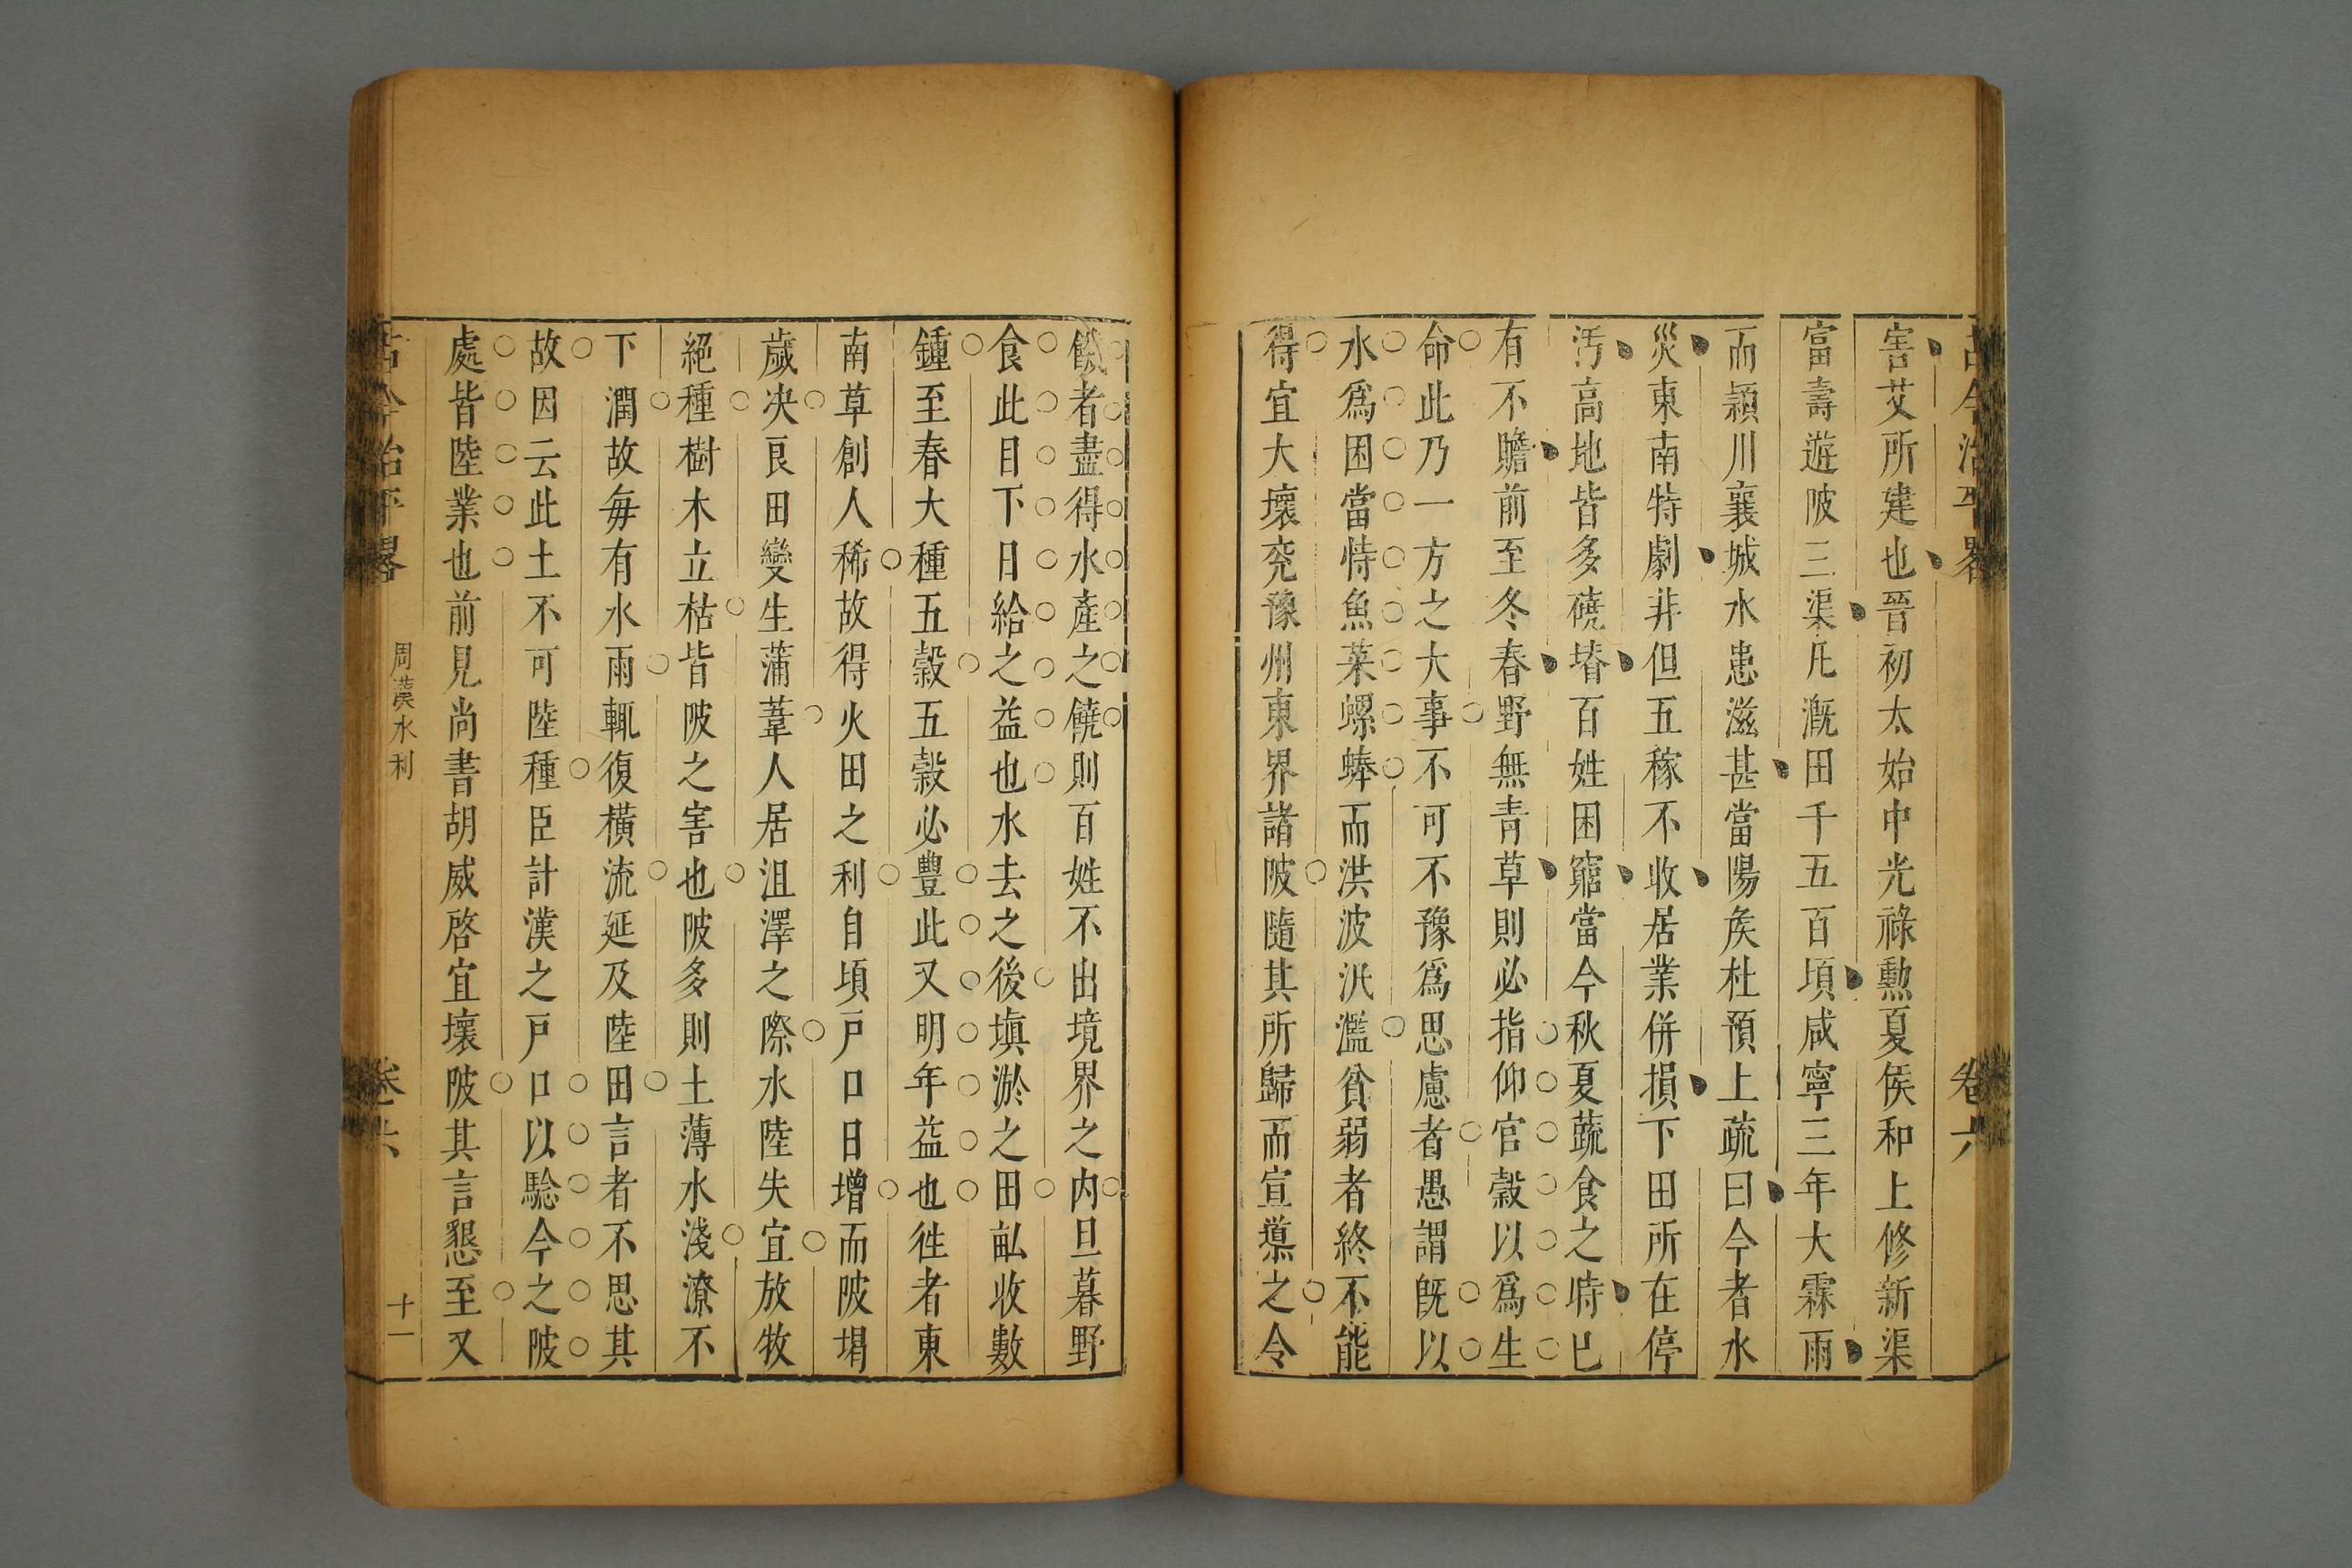 古今治平畧
卷六
害艾所建也晉初太始中光祿勲夏侯和上修新渠
富壽遊陂三渠凡漑田千五百頃咸寧三年大霖雨
而潁川襄城水患滋甚當陽矦杜預上疏曰今者水
災東南特劇非但五稼不收居業併損下田所在停
汚高地皆多磽塉百姓困窮當今秋夏蔬食之時已
有不贍前至冬春野無青草則必指仰官穀以爲生
命此乃一方之大事不可不豫爲思慮者愚謂旣以
水爲困當恃魚菜螺蜯而洪波汎濫貧弱者終不能
得宜大壞兖豫州東界諸陂隨其所歸而宣導之令
饑者盡得水產之饒則百姓不出境界之内旦暮野
食此目下日給之益也水去之後塡淤之田畆收數
鍾至春大種五穀五穀必豐此又明年益也徃者東
南草創人稀故得火田之利自頃戸口日增而陂堨
歲决良田變生蒲葦人居沮澤之際水陸失宜放牧
絕種樹木立枯皆陂之害也陂多則土薄水淺潦不
下潤故毎有水雨輒復橫流延及陸田言者不思其
故因云此土不可陸種臣計漢之戸口以驗今之陂
處皆陸業也前見尚書胡威啓宜壞陂其言懇至又
古今治平畧
周漢水利
卷六
十一